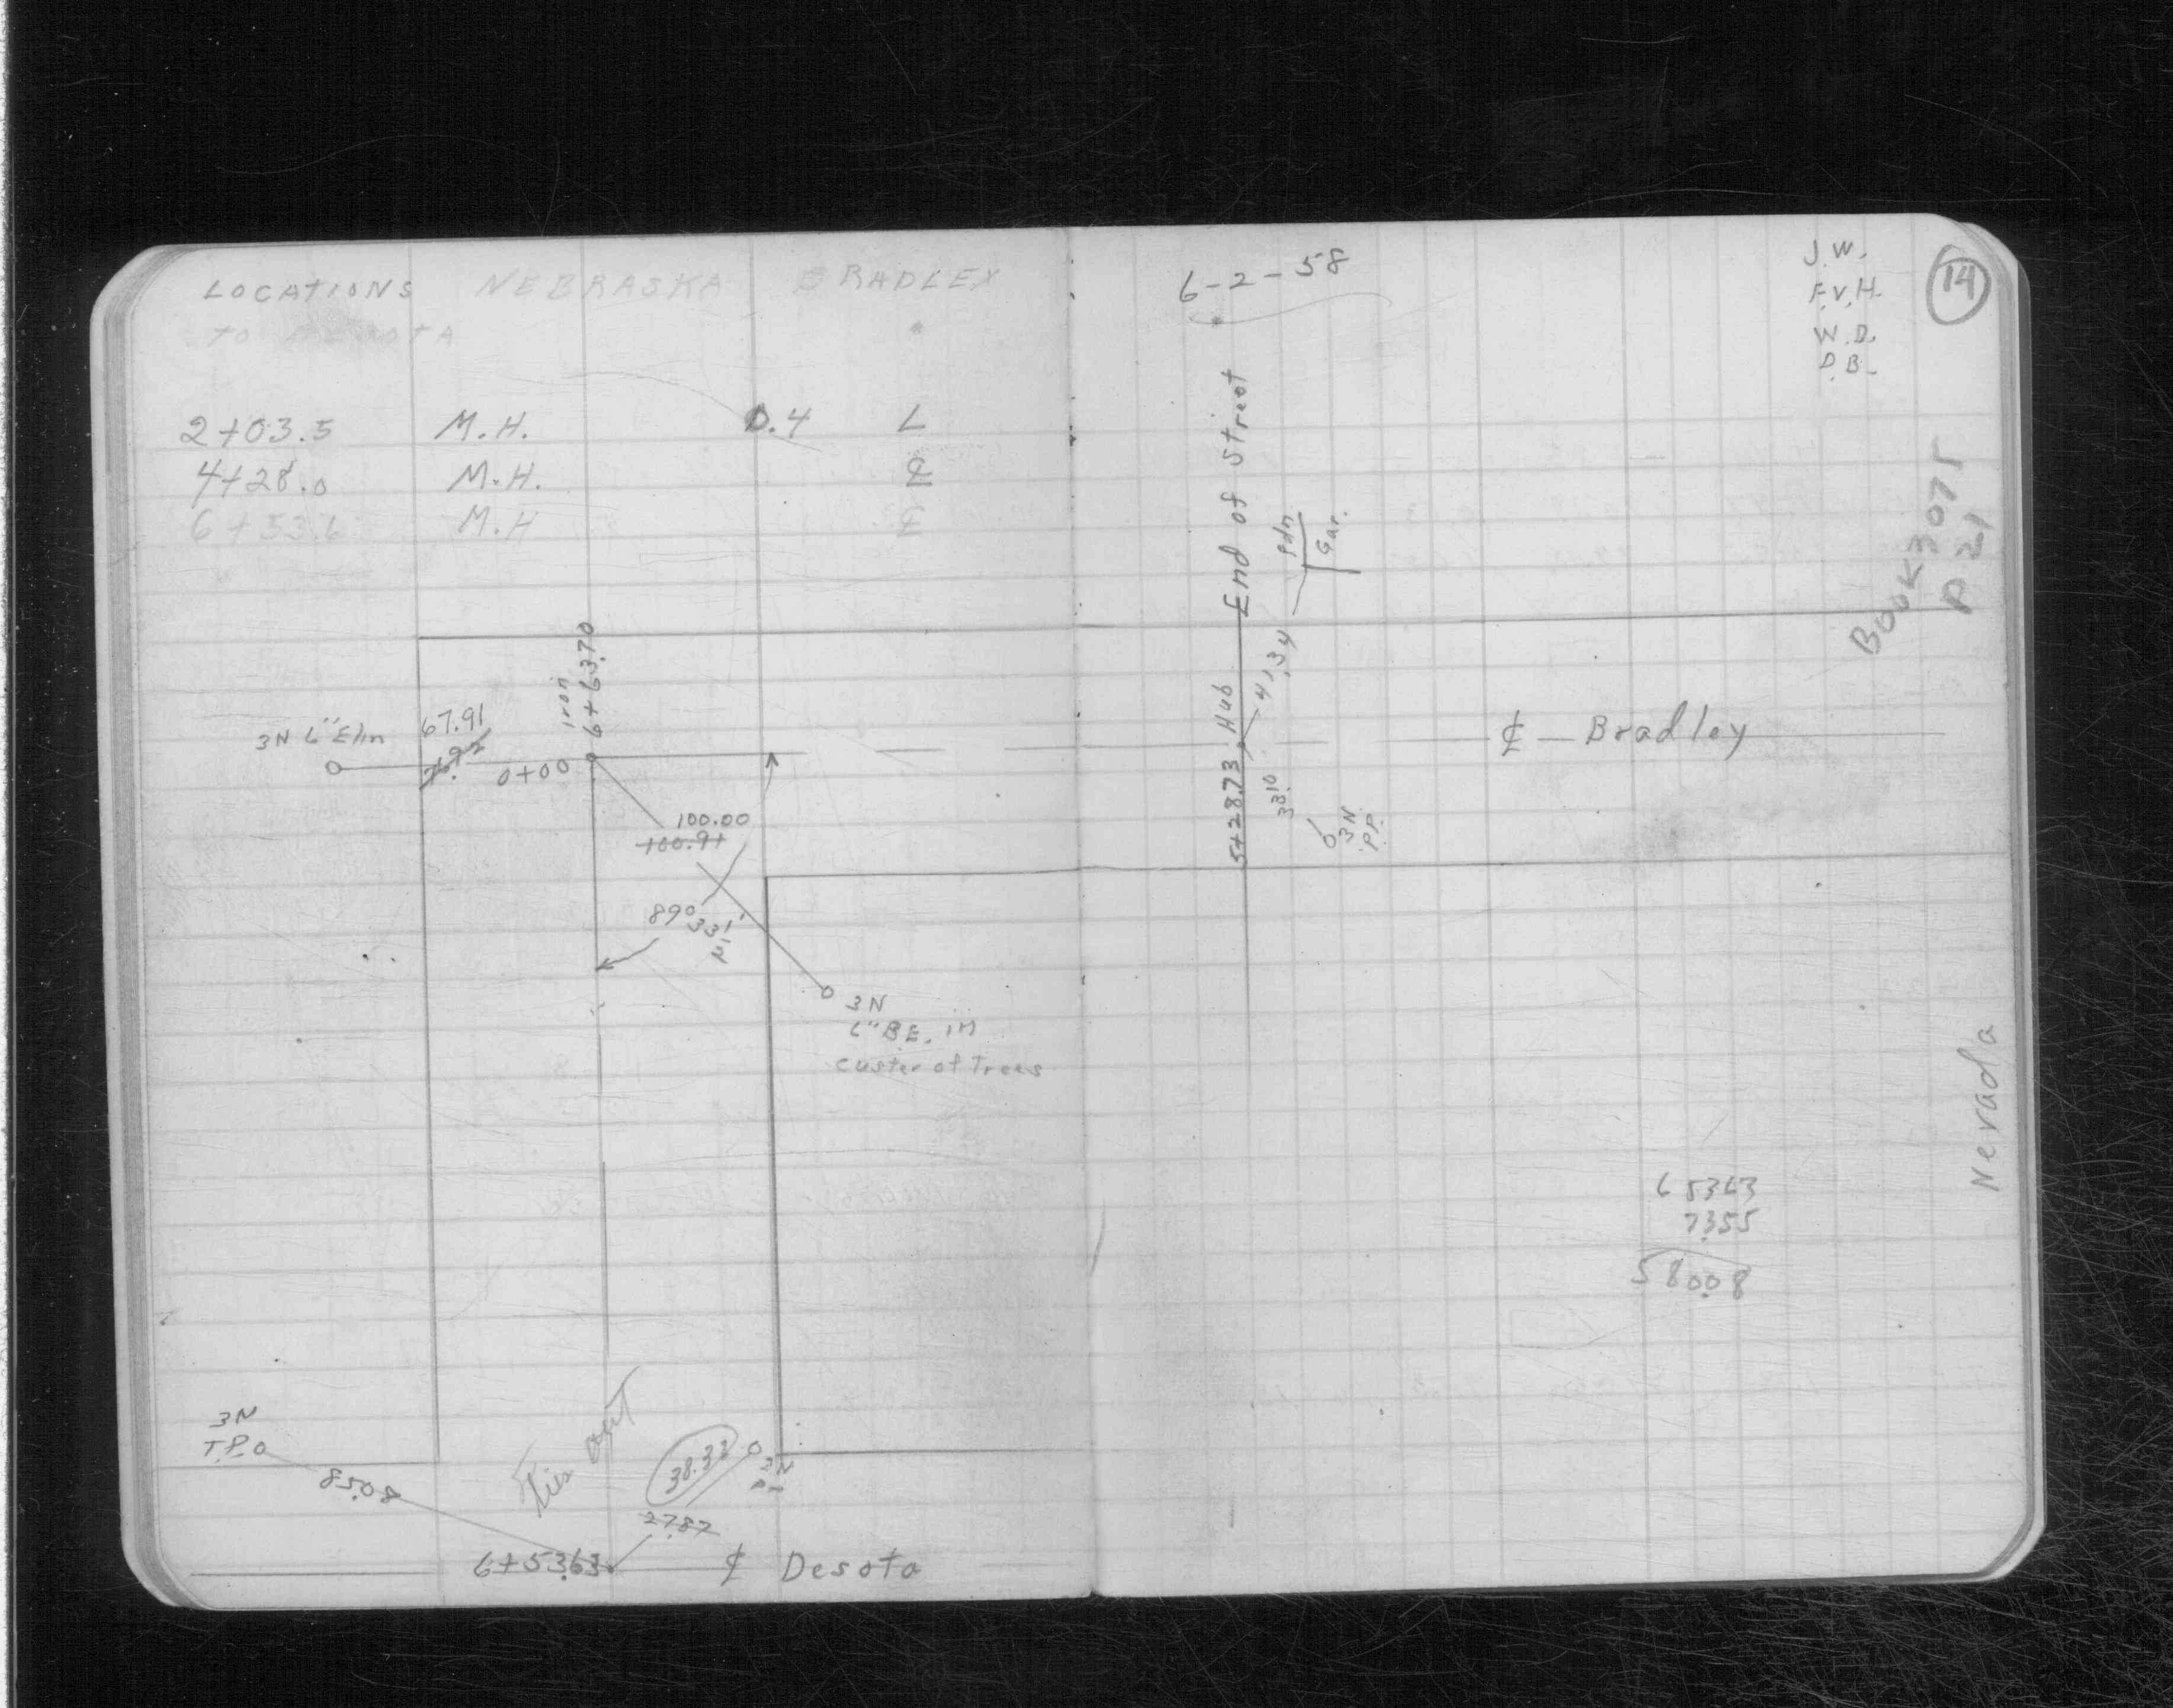 LOCATIONS NEBRASKA BRADLEY
TO DESOTA
2+03.5 M.H. 0.4 L
4+28.0 M.H. ℄
6+53.6 M.H ℄
iron
6+63.70
3N 6" Elm 67.91
0+00
100.00
100.91
89° 33'
3N
6" B.E. IN
Custer of Trees
3N
T.P.
85.08
Ties out
38.32
3N
27.87
6+53.63
℄ Desota
6-2-58
J.W.
F.V.H.
W.D.
D.B.
14
End of Street
Gar.
41.34
5+28.73 Hub
33.10
3N
P.P.
℄ — Bradley
BOOK 3075
P 21
Nevada
65363
7355
58008